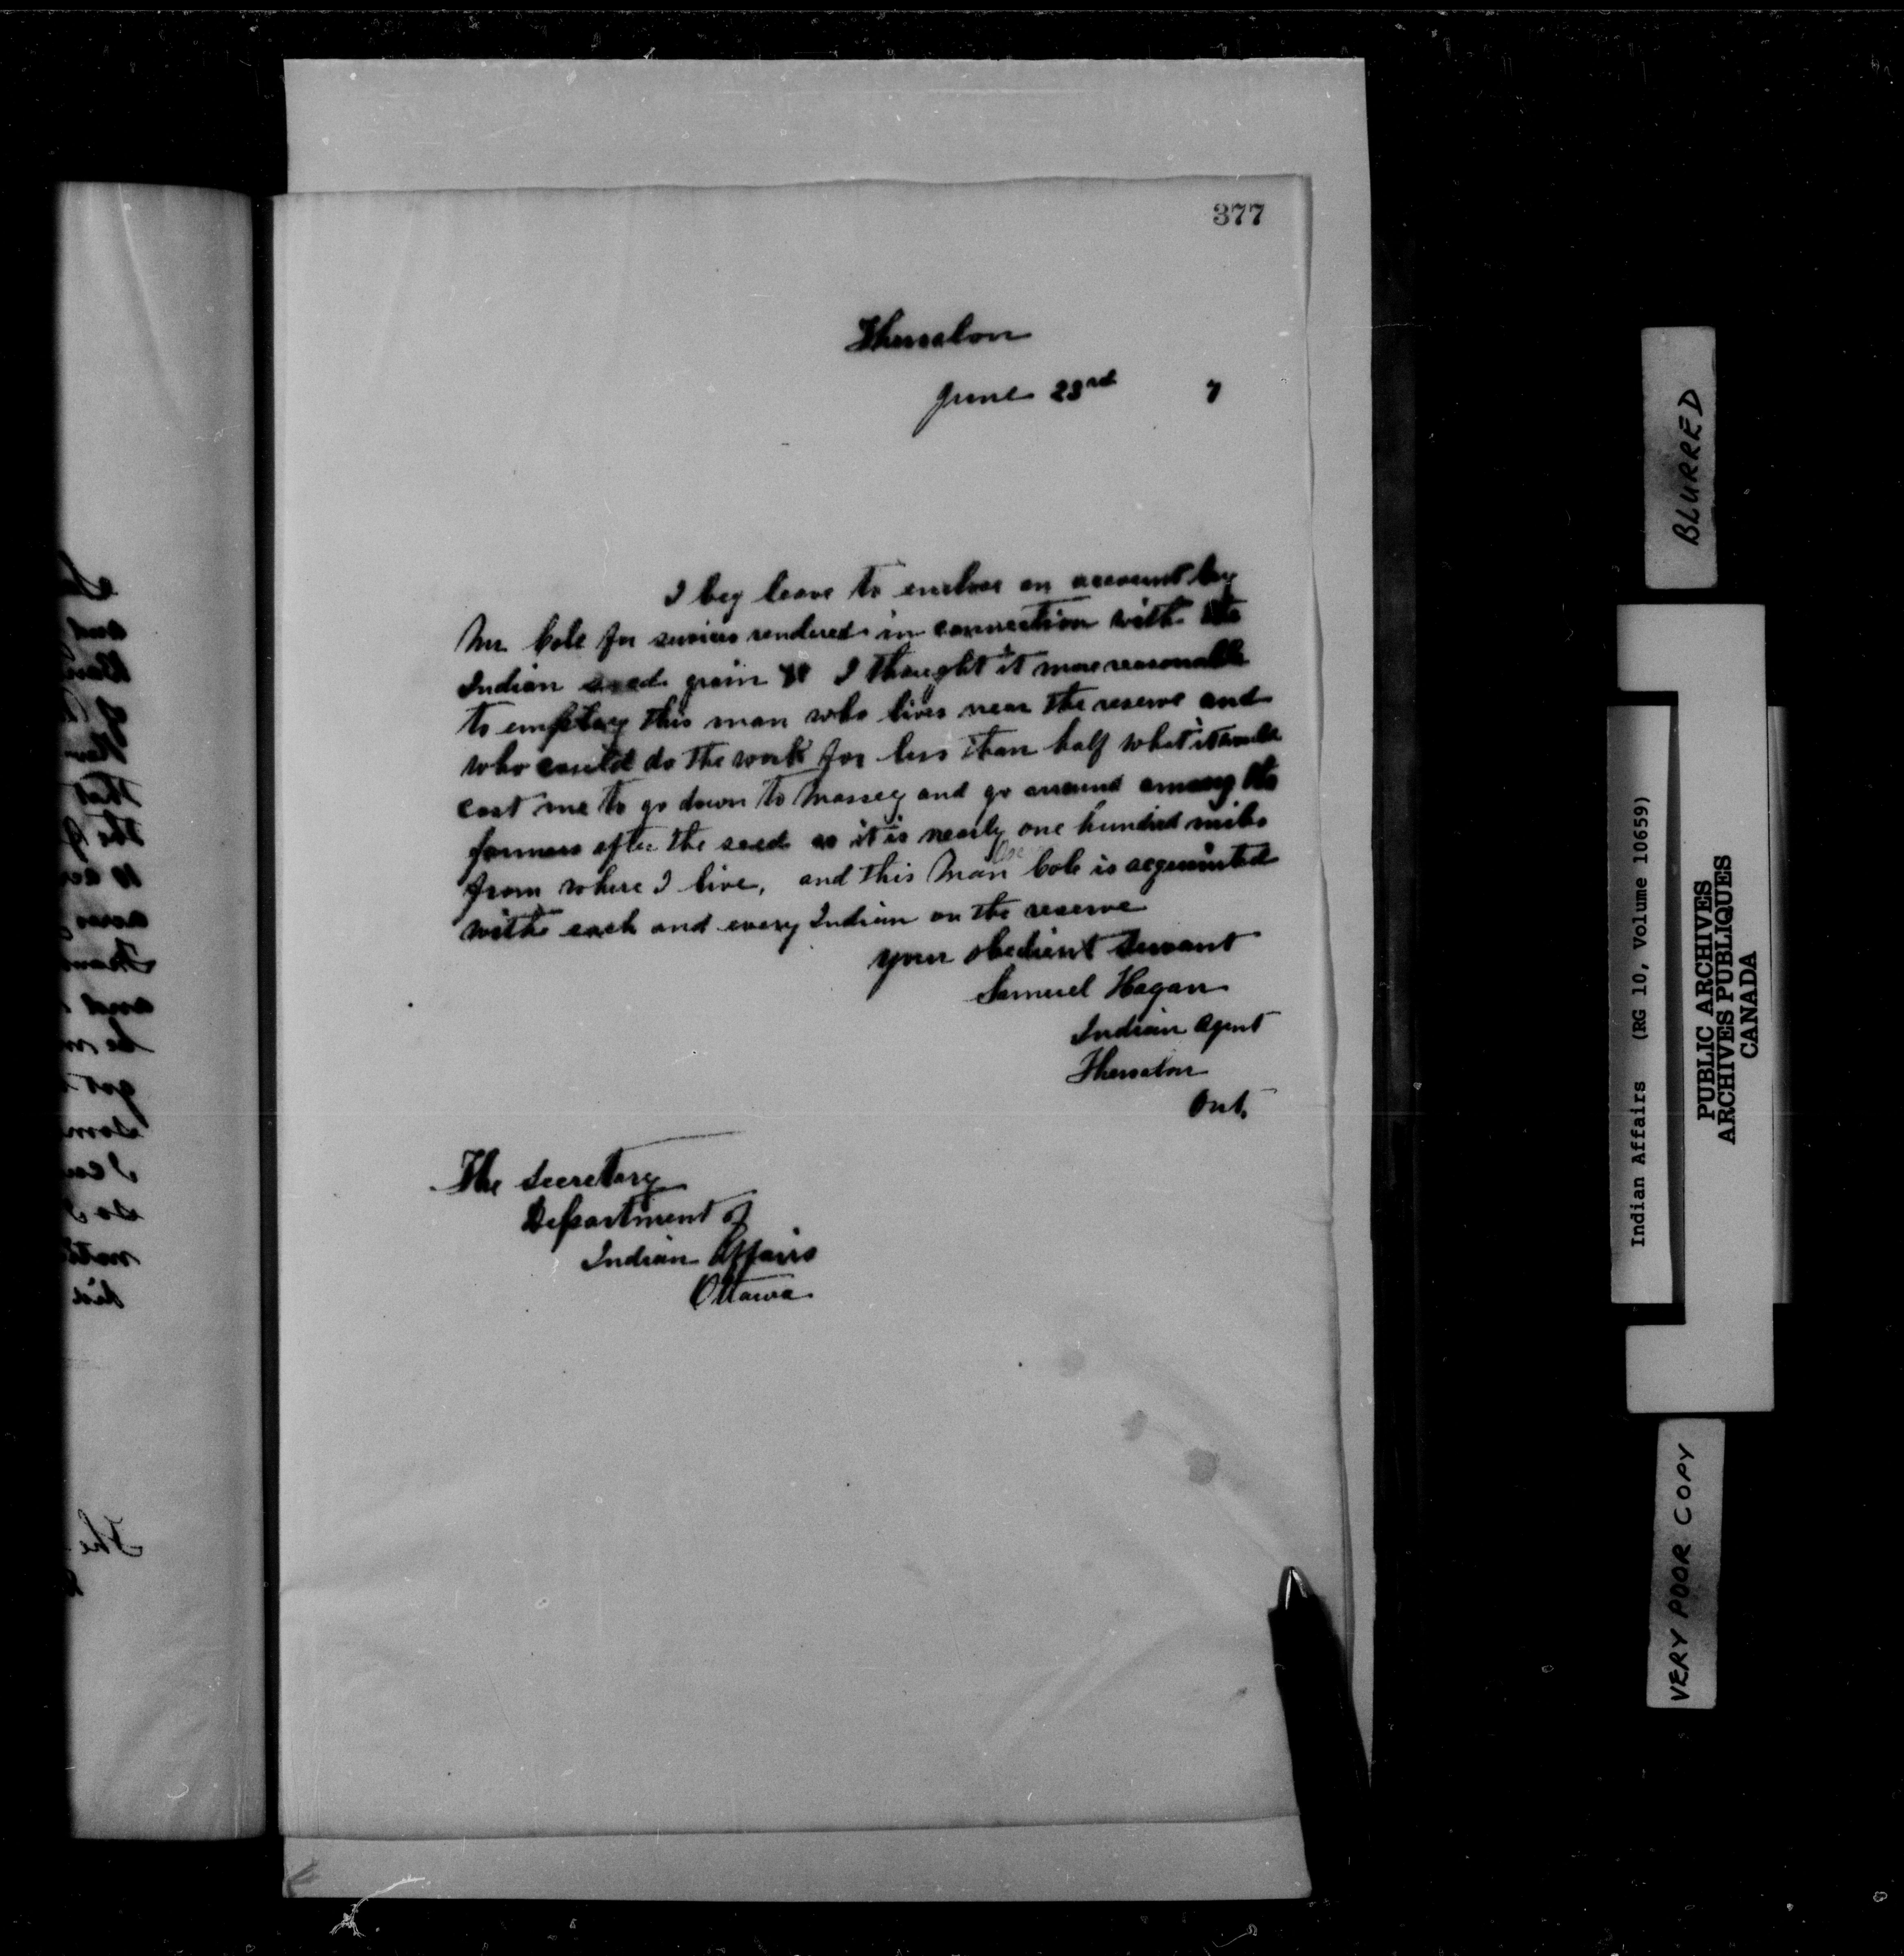 377
Thessalon
June 23rd 7
I beg leave to enclose an account by
Mr Cole for services rendered in connection with the
Indian seed grain I thought it more reasonable
to employ this man who lives near the reserve and
who could do the work for less than half what it would
cost me to go down to Massey and go around among the
farmers after the seed as it is nearly one hundred miles
from where I live, and this Man Cole is acquainted
withe each and every Indian on the reserve
your obedient servant
Samuel Hagan
Indian Agent
Thessalon
Ont.
The Secretary
Department of
Indian Affairs
Ottawa
BLURRED
Indian Affairs (RG 10, Volume 10659)
PUBLIC ARCHIVES
ARCHIVES PUBLIQUES
CANADA
VERY POOR COPY